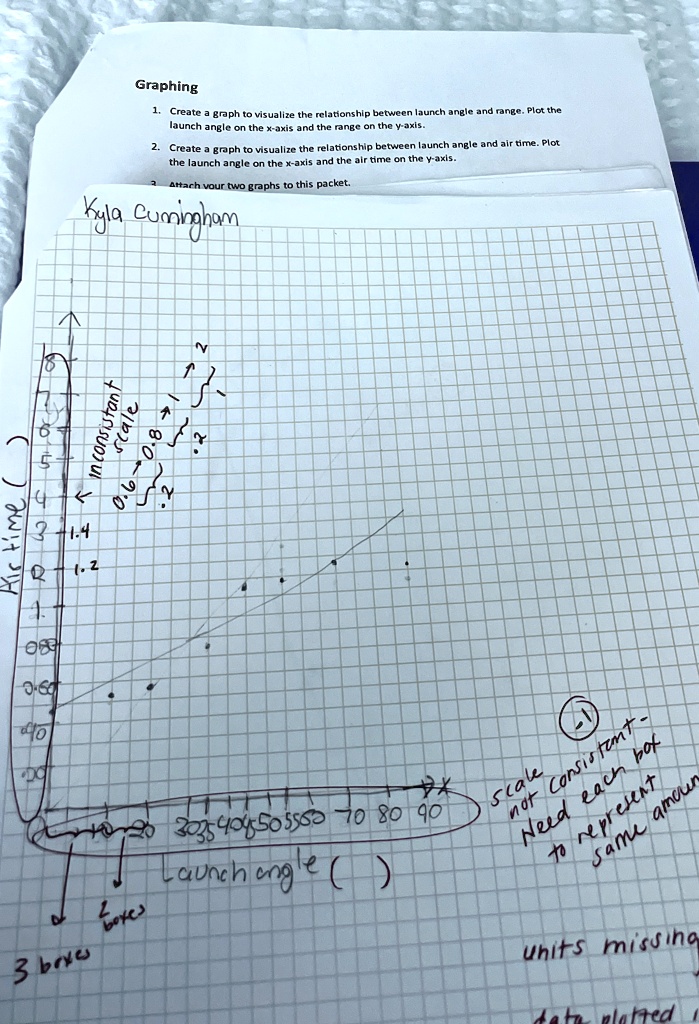 Graphing
1. Create a graph to visualize the relationship between launch angle and range. Plot the
launch angle on the x-axis and the range on the y-axis.
2. Create a graph to visualize the relationship between launch angle and air time. Plot
the launch angle on the x-axis and the air time on the y-axis.
3. Attach your two graphs to this packet.
Kyla Cunningham
Air time ( )
8
5
4
3
2
1
080
0.60
40
20
1.4
1.2
← inconsistant
scale
0.6 → 0.8 → 1 → 2
.2 .2 1
x
10 20 30 35 40 45 50 55 60 70 80 90
Launch angle ( )
3 boxes
2
boxes
.1
scale
not consistant-
Need each box
to represent
same amoun
units missing
data plotted